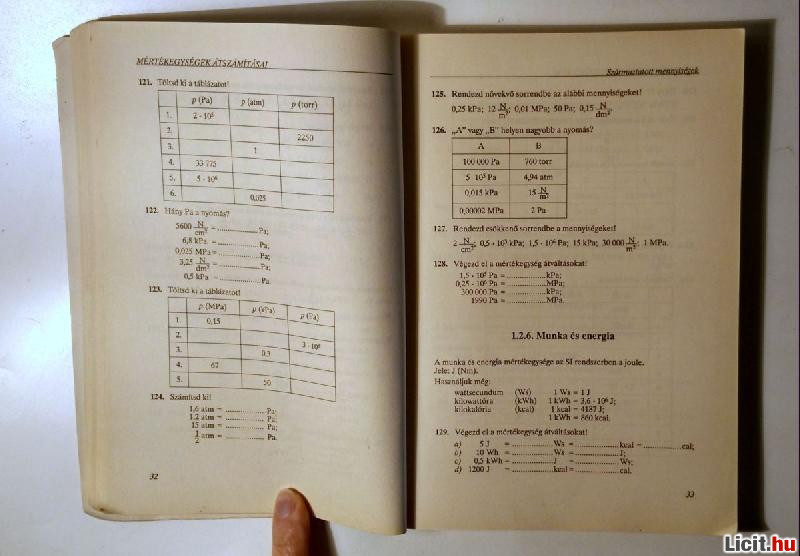 MÉRTÉKEGYSÉGEK ÁTSZÁMÍTÁSAI
121. Töltsd ki a táblázatot!
p (Pa) p (atm) p (torr)
1. 2 · 10⁵
2. 2250
3. 1
4. 33 775
5. 5 · 10⁶
6. 0,025
122. Hány Pa a nyomás?
5600 N/cm² = .............. Pa;
6,8 kPa = .............. Pa;
0,025 MPa = .............. Pa;
3,25 N/dm² = .............. Pa;
0,5 kPa = .............. Pa.
123. Töltsd ki a táblázatot!
p (MPa) p (kPa) p (Pa)
1. 0,15
2. 3 · 10⁶
3. 0,3
4. 67
5. 50
124. Számítsd ki!
1,6 atm = .............. Pa;
1,2 atm = .............. Pa;
15 atm = .............. Pa;
1/2 atm = .............. Pa.
32
Származtatott mennyiségek
125. Rendezd növekvő sorrendbe az alábbi mennyiségeket!
0,25 kPa; 12 N/m²; 0,01 MPa; 50 Pa; 0,15 N/dm².
126. „A” vagy „B” helyen nagyobb a nyomás?
A B
100 000 Pa 760 torr
5 · 10⁵ Pa 4,94 atm
0,015 kPa 15 N/m²
0,00002 MPa 2 Pa
127. Rendezd csökkenő sorrendbe a mennyiségeket!
2 N/cm²; 0,5 · 10³ kPa; 1,5 · 10⁶ Pa; 15 kPa; 30 000 N/m²; 1 MPa.
128. Végezd el a mértékegység átváltásokat!
1,5 · 10² Pa = .............. kPa;
0,25 · 10⁶ Pa = .............. MPa;
300 000 Pa = .............. kPa;
1990 Pa = .............. MPa.
1.2.6. Munka és energia
A munka és energia mértékegysége az SI rendszerben a joule.
Jele: J (Nm).
Használjuk még:
wattsecundum (Ws) 1 Ws = 1 J
kilowattóra (kWh) 1 kWh = 3,6 · 10⁶ J;
kilokalória (kcal) 1 kcal = 4187 J;
1 kWh = 860 kcal.
129. Végezd el a mértékegység átváltásokat!
a) 5 J = .............. Ws = .............. kcal = .............. cal;
b) 10 Wh = .............. Ws = .............. J;
c) 0,5 kWh = .............. J = .............. Ws;
d) 1200 J = .............. kcal = .............. cal.
33
Licit.hu